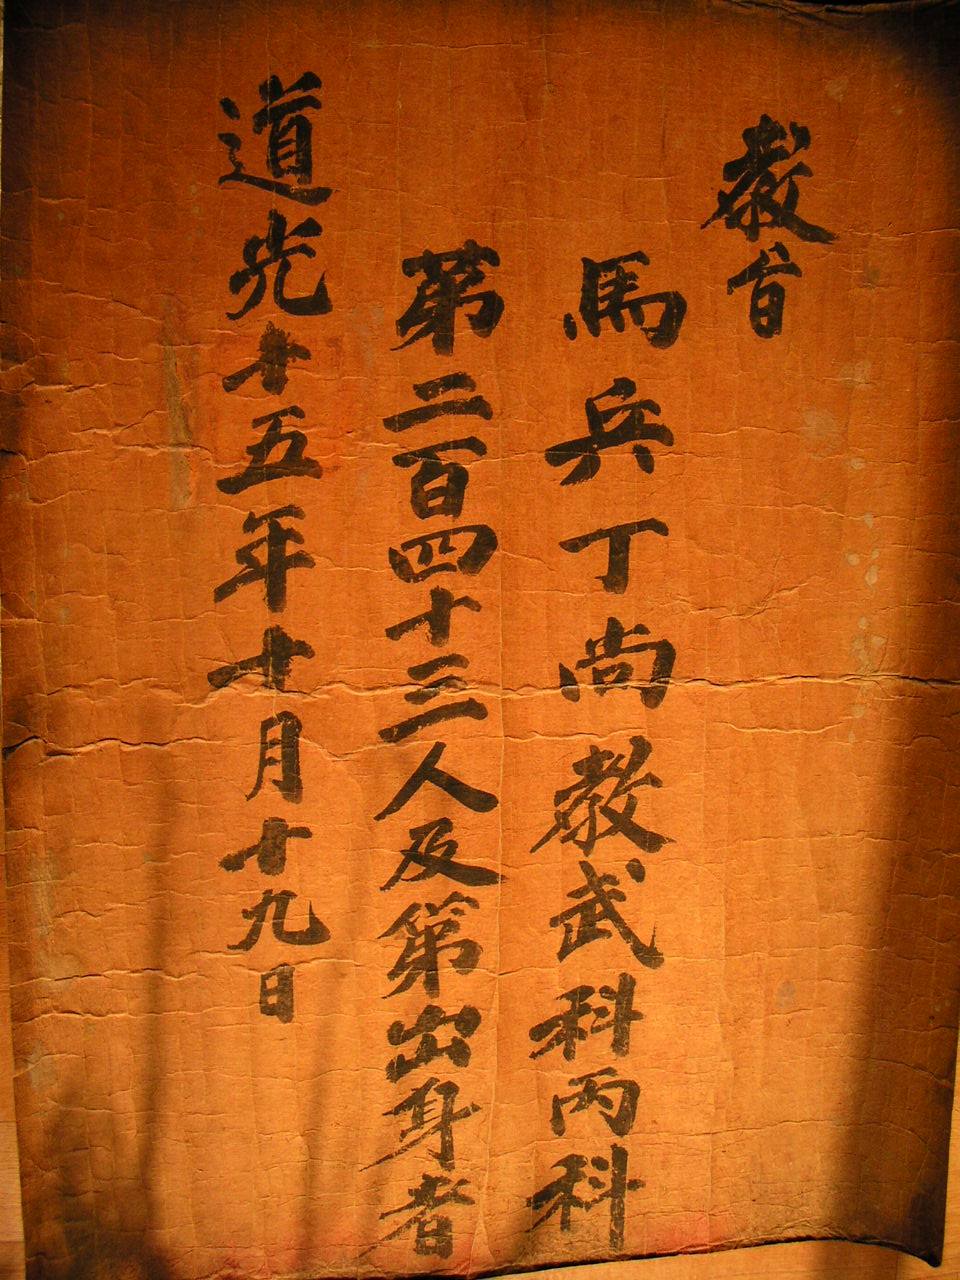 教旨
馬兵丁尚教武科丙科
第二百四十三人及第出身者
道光十五年十月十九日